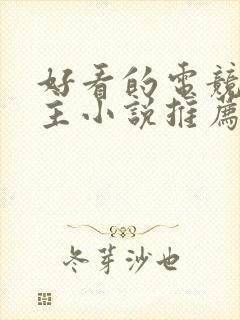 好看的電競
主小說推薦
冬芽沙也